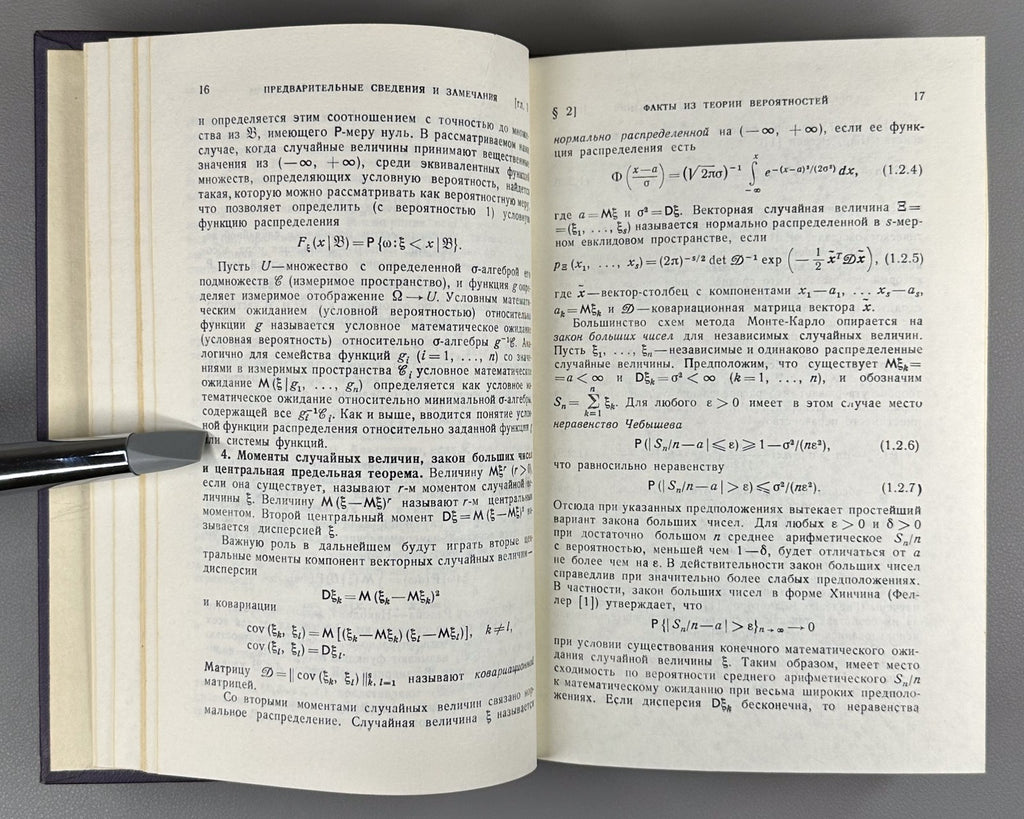 16 ПРЕДВАРИТЕЛЬНЫЕ СВЕДЕНИЯ И ЗАМЕЧАНИЯ [гл. 1
и определяется этим соотношением с точностью до
ства из 𝔅, имеющего P-меру нуль. В рассматриваемом
случае, когда случайные величины принимают вещественные
значения из (—∞, +∞), среди эквивалентных функций
множеств, определяющих условную вероятность, найдется
такая, которую можно рассматривать как вероятностную меру,
что позволяет определить (с вероятностью 1) условную
функцию распределения
F_ξ(x | 𝔅) = P {ω : ξ < x | 𝔅}.
Пусть U—множество с определенной σ-алгеброй его
подмножеств 𝒞 (измеримое пространство), и функция g опре-
деляет измеримое отображение Ω ⟶ U. Условным математи-
ческим ожиданием (условной вероятностью) относительно
функции g называется условное математическое ожидание
(условная вероятность) относительно σ-алгебры g⁻¹𝒞. Ана-
логично для семейства функций g_i (i = 1, ..., n) со значе-
ниями в измеримых пространства 𝒞_i условное математическое
ожидание M (ξ | g₁, ..., g_n) определяется как условное ма-
тематическое ожидание относительно минимальной σ-алгебры,
содержащей все g_i⁻¹𝒞_i. Как и выше, вводится понятие услов-
ной функции распределения относительно заданной функции
или системы функций.
4. Моменты случайных величин, закон больших чисел
и центральная предельная теорема. Величину Mξ^r (r > 0),
если она существует, называют r-м моментом случайной ве-
личины ξ. Величину M (ξ—Mξ)^r называют r-м центральным
моментом. Второй центральный момент Dξ = M (ξ—Mξ)² на-
зывается дисперсией ξ.
Важную роль в дальнейшем будут играть вторые цен-
тральные моменты компонент векторных случайных величин—
дисперсии
Dξ_k = M (ξ_k—Mξ_k)²
и ковариации
cov (ξ_k, ξ_l) = M [(ξ_k—Mξ_k) (ξ_l—Mξ_l)], k ≠ l,
cov (ξ_l, ξ_l) = Dξ_l.
Матрицу 𝒟 = || cov (ξ_k, ξ_l) ||^s_{k, l=1} называют ковариационной
матрицей.
Со вторыми моментами случайных величин связано нор-
мальное распределение. Случайная величина ξ называется
§ 2] ФАКТЫ ИЗ ТЕОРИИ ВЕРОЯТНОСТЕЙ 17
нормально распределенной на (—∞, +∞), если ее функ-
ция распределения есть
Φ ((x—a)/σ) = (√2πσ)⁻¹ ∫_{—∞}^{x} e^{-(x-a)²/(2σ²)} dx, (1.2.4)
где a = Mξ и σ² = Dξ. Векторная случайная величина Ξ =
= (ξ₁, ..., ξ_s) называется нормально распределенной в s-мер-
ном евклидовом пространстве, если
p_Ξ (x₁, ..., x_s) = (2π)^{-s/2} det 𝒟⁻¹ exp (—1/2 x̃ᵀ𝒟x̃), (1.2.5)
где x̃—вектор-столбец с компонентами x₁—a₁, ... x_s—a_s,
a_k = Mξ_k и 𝒟—ковариационная матрица вектора x̃.
Большинство схем метода Монте-Карло опирается на
закон больших чисел для независимых случайных величин.
Пусть ξ₁, ..., ξ_n—независимые и одинаково распределенные
случайные величины. Предположим, что существует Mξ_k =
= a < ∞ и Dξ_k = σ² < ∞ (k = 1, ..., n), и обозначим
S_n = ∑_{k=1}^{n} ξ_k. Для любого ε > 0 имеет в этом случае место
неравенство Чебышева
P (| S_n/n — a | ⩽ ε) ⩾ 1 — σ²/(nε²), (1.2.6)
что равносильно неравенству
P (| S_n/n — a | > ε) ⩽ σ²/(nε²). (1.2.7)
Отсюда при указанных предположениях вытекает простейший
вариант закона больших чисел. Для любых ε > 0 и δ > 0
при достаточно большом n среднее арифметическое S_n/n
с вероятностью, меньшей чем 1—δ, будет отличаться от a
не более чем на ε. В действительности закон больших чисел
справедлив при значительно более слабых предположениях.
В частности, закон больших чисел в форме Хинчина (Фел-
лер [1]) утверждает, что
P {| S_n/n — a | > ε}_{n→∞} ⟶ 0
при условии существования конечного математического ожи-
дания случайной величины ξ. Таким образом, имеет место
сходимость по вероятности среднего арифметического S_n/n
к математическому ожиданию при весьма широких предполо-
жениях. Если дисперсия Dξ_k бесконечна, то неравенства